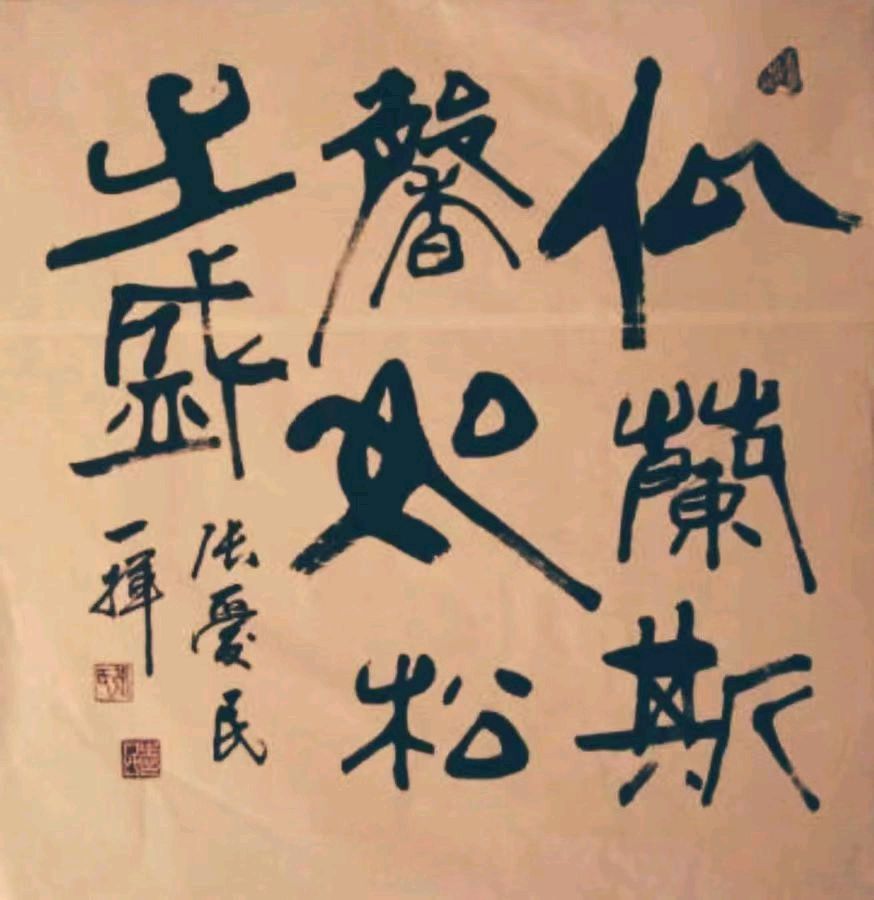 似蘭斯
馨如松
之盛
張愛民
一揮